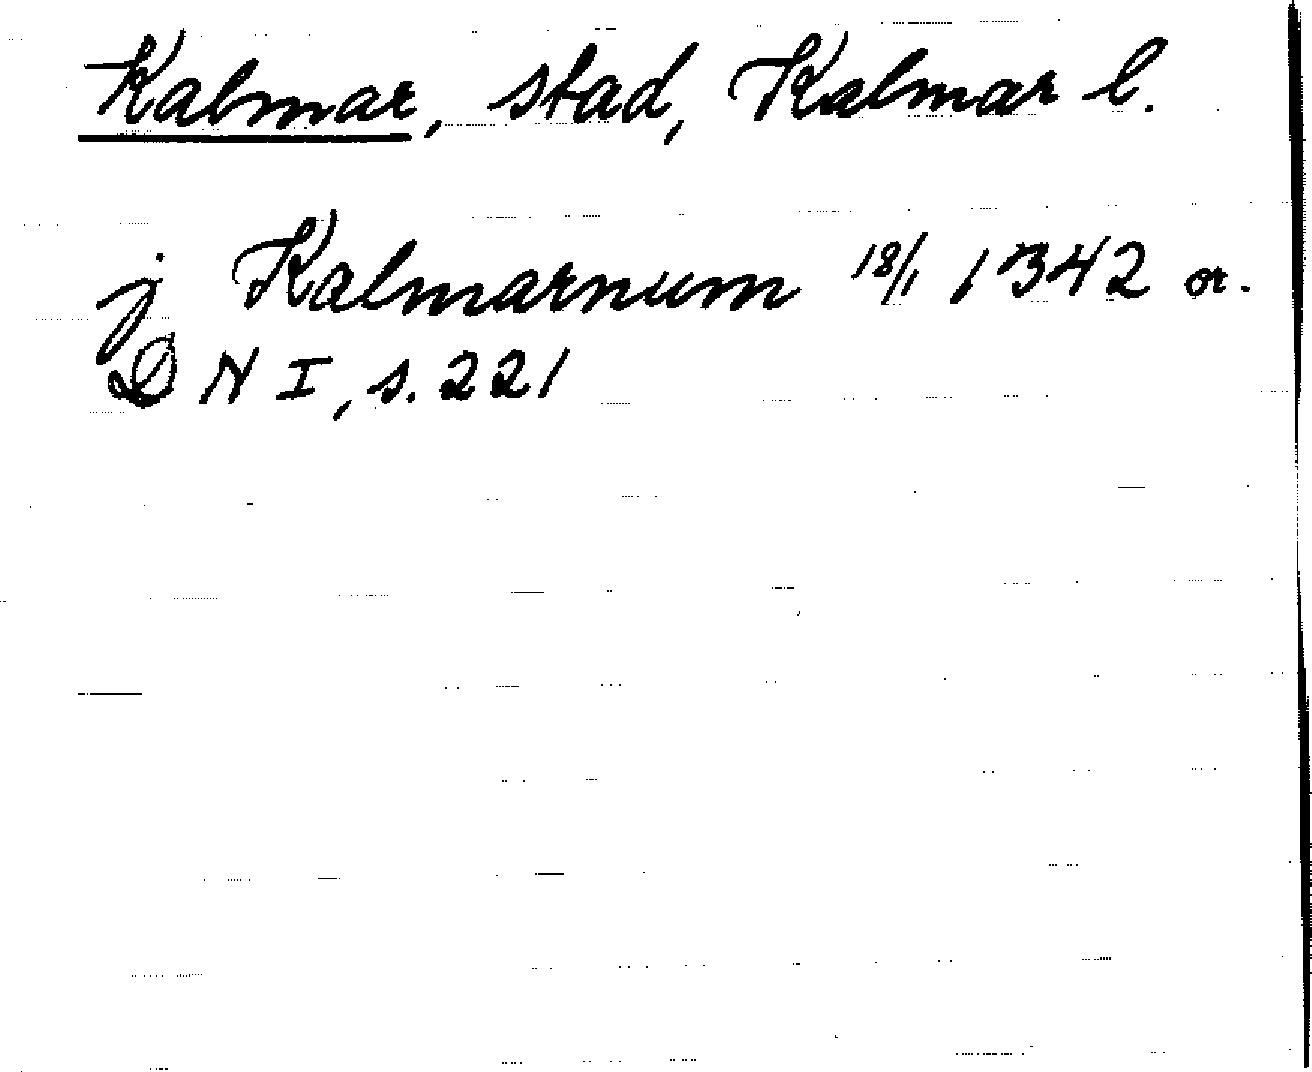 Kalmar, stad, Kalmar l.
j Kalmarnum 18/1 1342 or.
DN I, s. 221